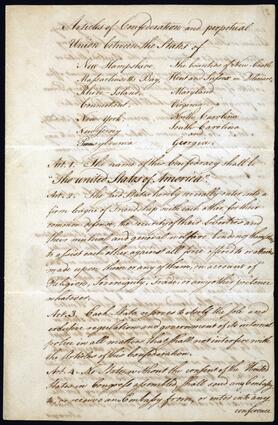 Articles of Confederation and perpetual
Union between the States of
New Hampshire The Counties of New Castle
Massachusetts Bay Kent and Sussex on Delaware
Rhode Island Maryland
Connecticut Virginia
New York North Carolina
New Jersey South Carolina
and
Pennsylvania Georgia.
Art. 1. The name of this Confederacy shall be
"The united States of America".
Art. 2. The said States hereby severally enter into a
firm league of Friendship with each other, for their
common defence, the security of their Liberties and
their mutual and general welfare, binding themselves
to assist each other against all force offered to or attacks
made upon them or any of them, on account of
Religion, Sovereignty, Trade, or any other pretence
whatever.
Art. 3. Each State reserves to itself the sole and
exclusive regulation and government of its internal
police in all matters that shall not interfere with
the Articles of this Confederation.
Art. 4. No State, without the consent of the United
States in Congress assembled, shall send any Embassy
to, or receive an Embassy from, or enter into any
conference